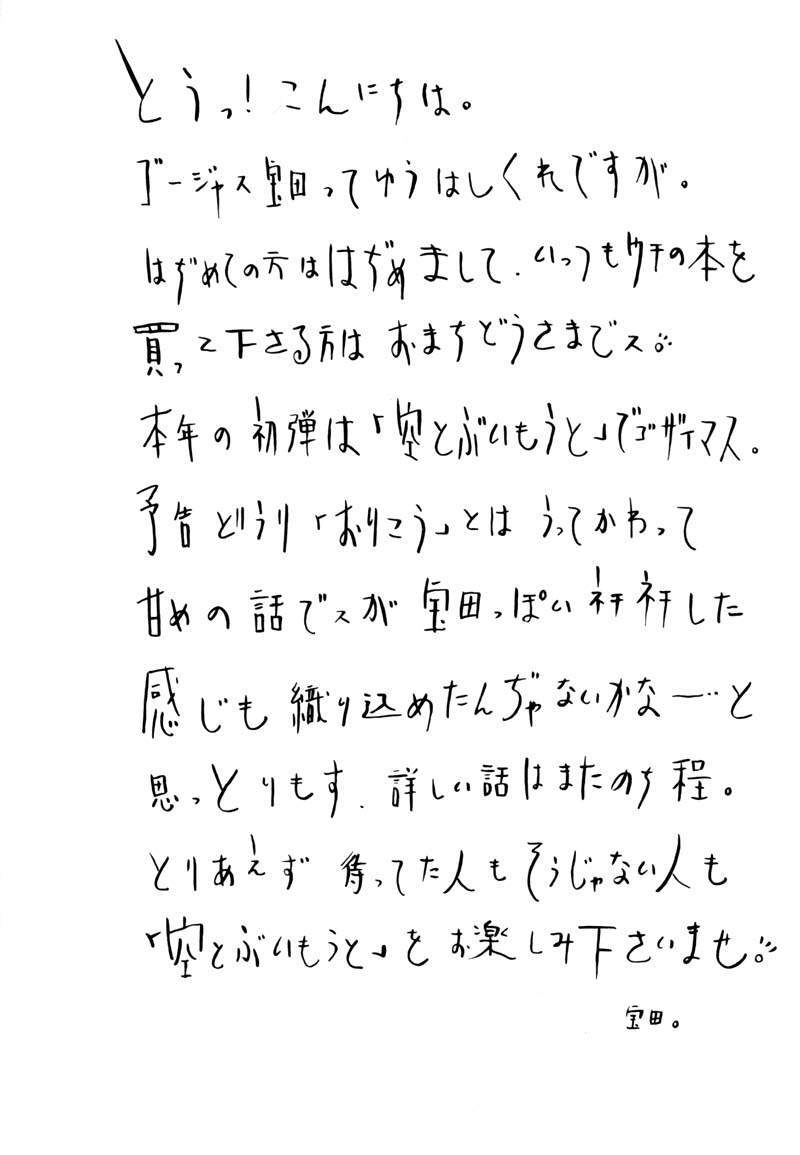 とうっ!こんにちは。
ゴージャス宝田ってゆうはしくれですが。
はぢめての方ははぢめまして、いっつもウチの本を
買って下さる方はおまちどうさまでス。
本年の初弾は「空とぶいもうと」でゴザイマス。
予告どうり「おりこう」とはうってかわって
甘めの話でスが宝田っぽいネチネチした
感じも織り込めたんぢゃないかな―…と
思っとりもす、詳しい話はまたのち程。
とりあえず待ってた人もそうじゃない人も
「空とぶいもうと」をお楽しみ下さいませ。
宝田。